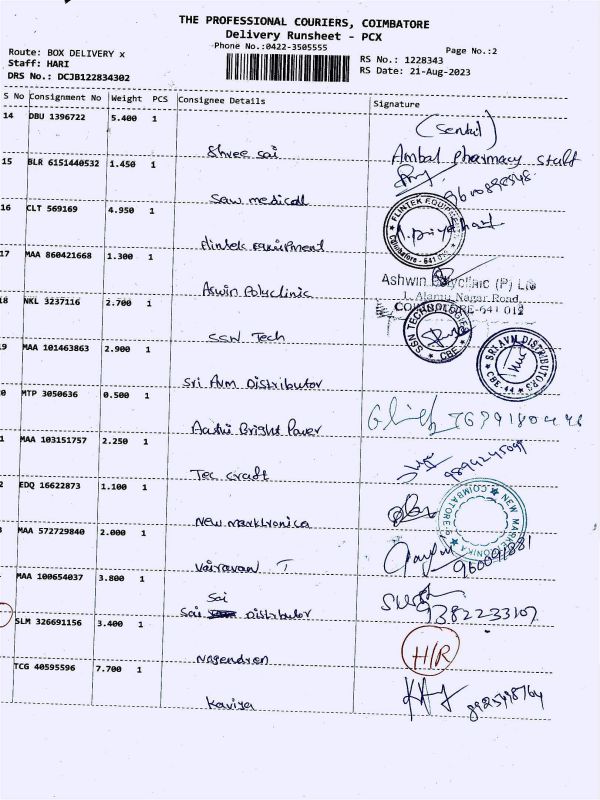 THE PROFESSIONAL COURIERS, COIMBATORE
Delivery Runsheet - PCX
Phone No.:0422-3505555
Page No.:2
Route: BOX DELIVERY x
Staff: HARI
RS No.: 1228343
DRS No.: DCJB122834302
RS Date: 21-Aug-2023
S No Consignment No Weight PCS Consignee Details Signature
14 DBU 1396722 5.400 1
(Senthil)
Shree sai
Ambal Pharmacy Staff
15 BLR 6151440532 1.450 1
Saw medical
16 CLT 569169 4.950 1
FLINTEK EQUIPMENT
Coimbatore - 641
Flintek equipment
17 MAA 860421668 1.300 1
Ashwin Polyclinic (P) Ltd
Aswin Polyclinic
1, Alamu Nagar Road,
COIMBATORE-641 012
18 NKL 3237116 2.700 1
SSN TECHNOLOGIES
CBE
SSN Tech
9 MAA 101463863 2.900 1
SRI AVM DISTRIBUTORS
CBE-44
Sri Avm Distributor
0 MTP 3050636 0.500 1
Bright Power
1 MAA 103151757 2.250 1
9894245098
Tec craft
2 EDQ 16622873 1.100 1
NEW MARKTRONIKA
COIMBATORE
New marktronica
3 MAA 572729840 2.000 1
Vairavan T
MAA 100654037 3.800 1
Sai
Sai Distributor
9382233107
SLM 326691156 3.400 1
H/R
Nagendren
TCG 40595596 7.700 1
Kaviya